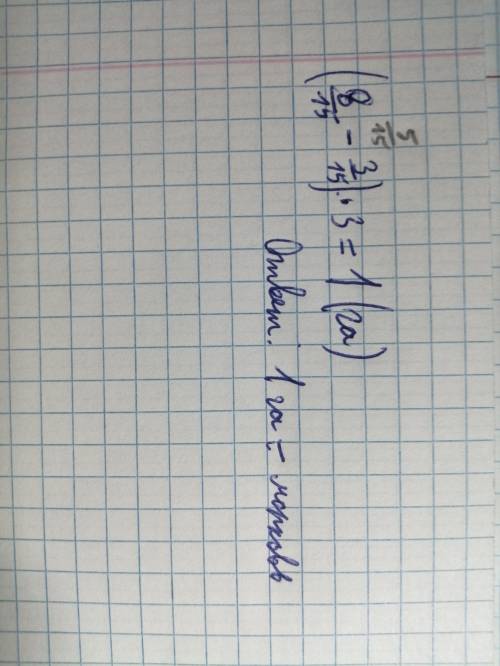 5/15
(8/15 - 3/15) · 3 = 1 (га)
Ответ: 1 га - морковь